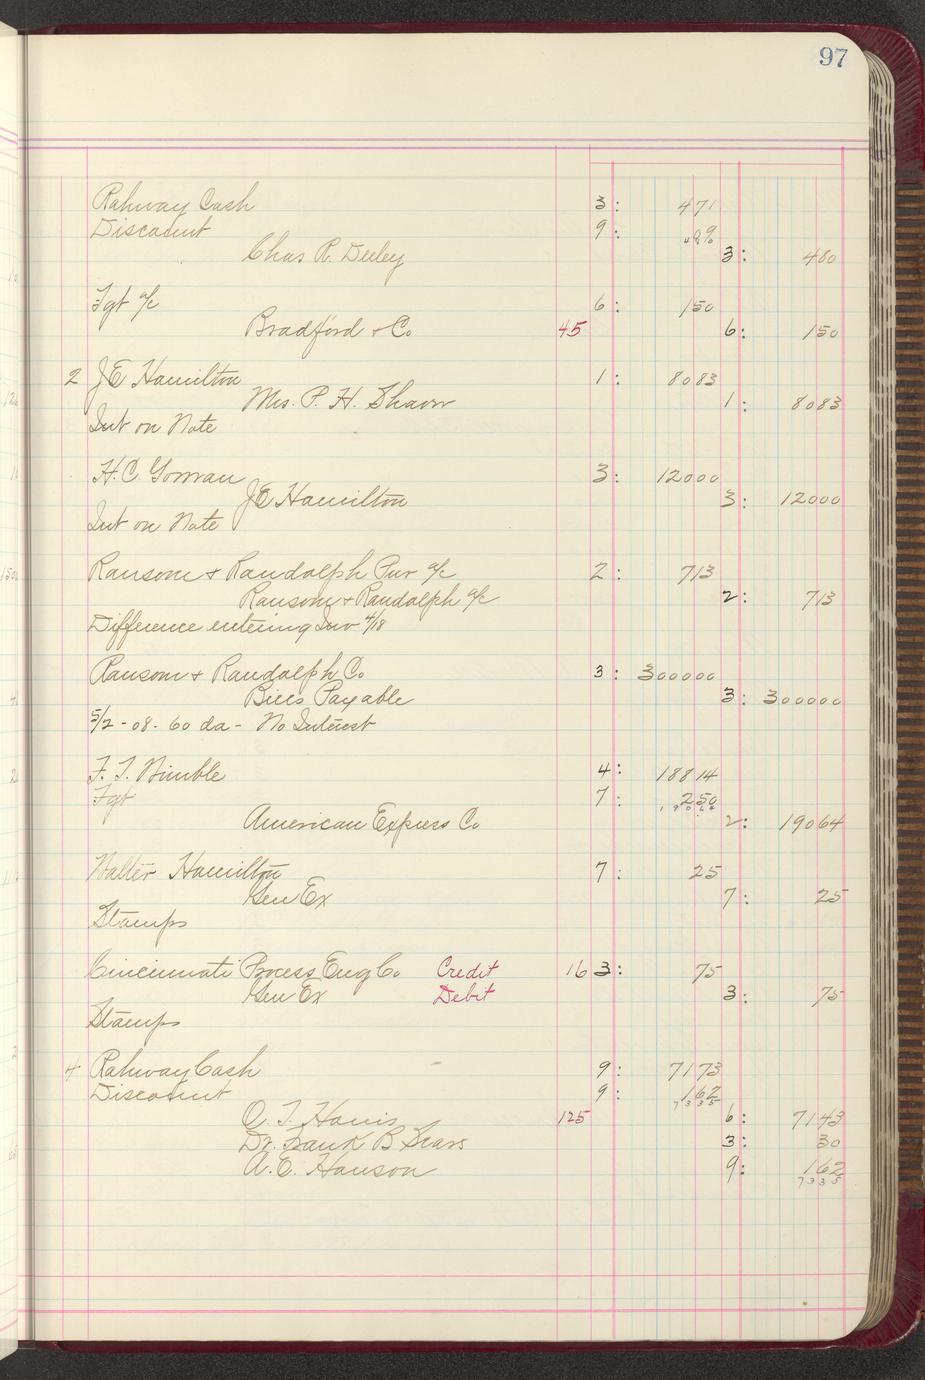 97
Rahway Cash 3: 471
Discount 9: 09
480
Chas R. Deeley 3: 480
Fgt a/c 6: 150
Bradford & Co 45 6: 150
2 J E Hamilton 1: 8083
Mrs. P. H. Shaon 1: 8083
Int on Note
H. C. Gorman 3: 12000
J E Hamilton 3: 12000
Int on Note
Ransom & Randolph Pur a/c 2: 713
Ransom & Randolph a/c 2: 713
Difference entering Inv 4/18
Ransom & Randolph Co 3: 300000
Bills Payable 3: 300000
5/2 - 08 - 60 da - No Interest
F. T. Nimble 4: 18814
Fgt 7: 250
19064
American Express Co 2: 19064
Walter Hamilton 7: 25
Gen Ex 7: 25
Stamps
Cincinnati Process Eng Co Credit 16 3: 75
Gen Ex Debit 3: 75
Stamps
4 Rahway Cash 9: 7173
Discount 9: 162
7335
O. T. Harris 125 6: 7143
Dr. Frank B Sears 3: 30
A. E. Hanson 9: 162
7335